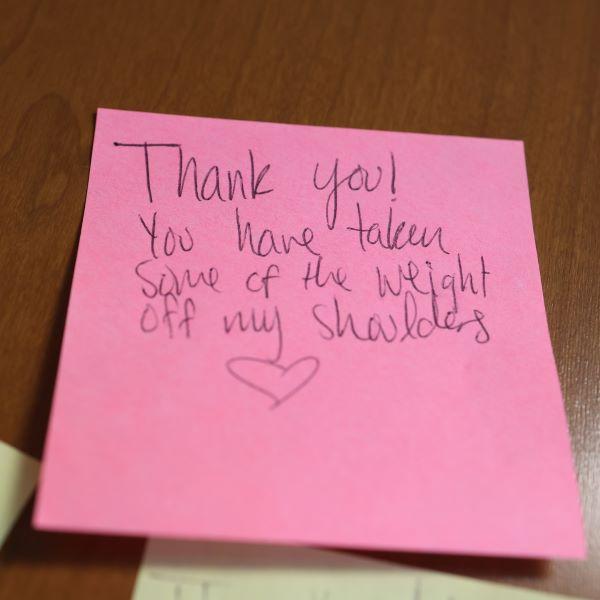 Thank you!
You have taken
some of the weight
off my shoulders